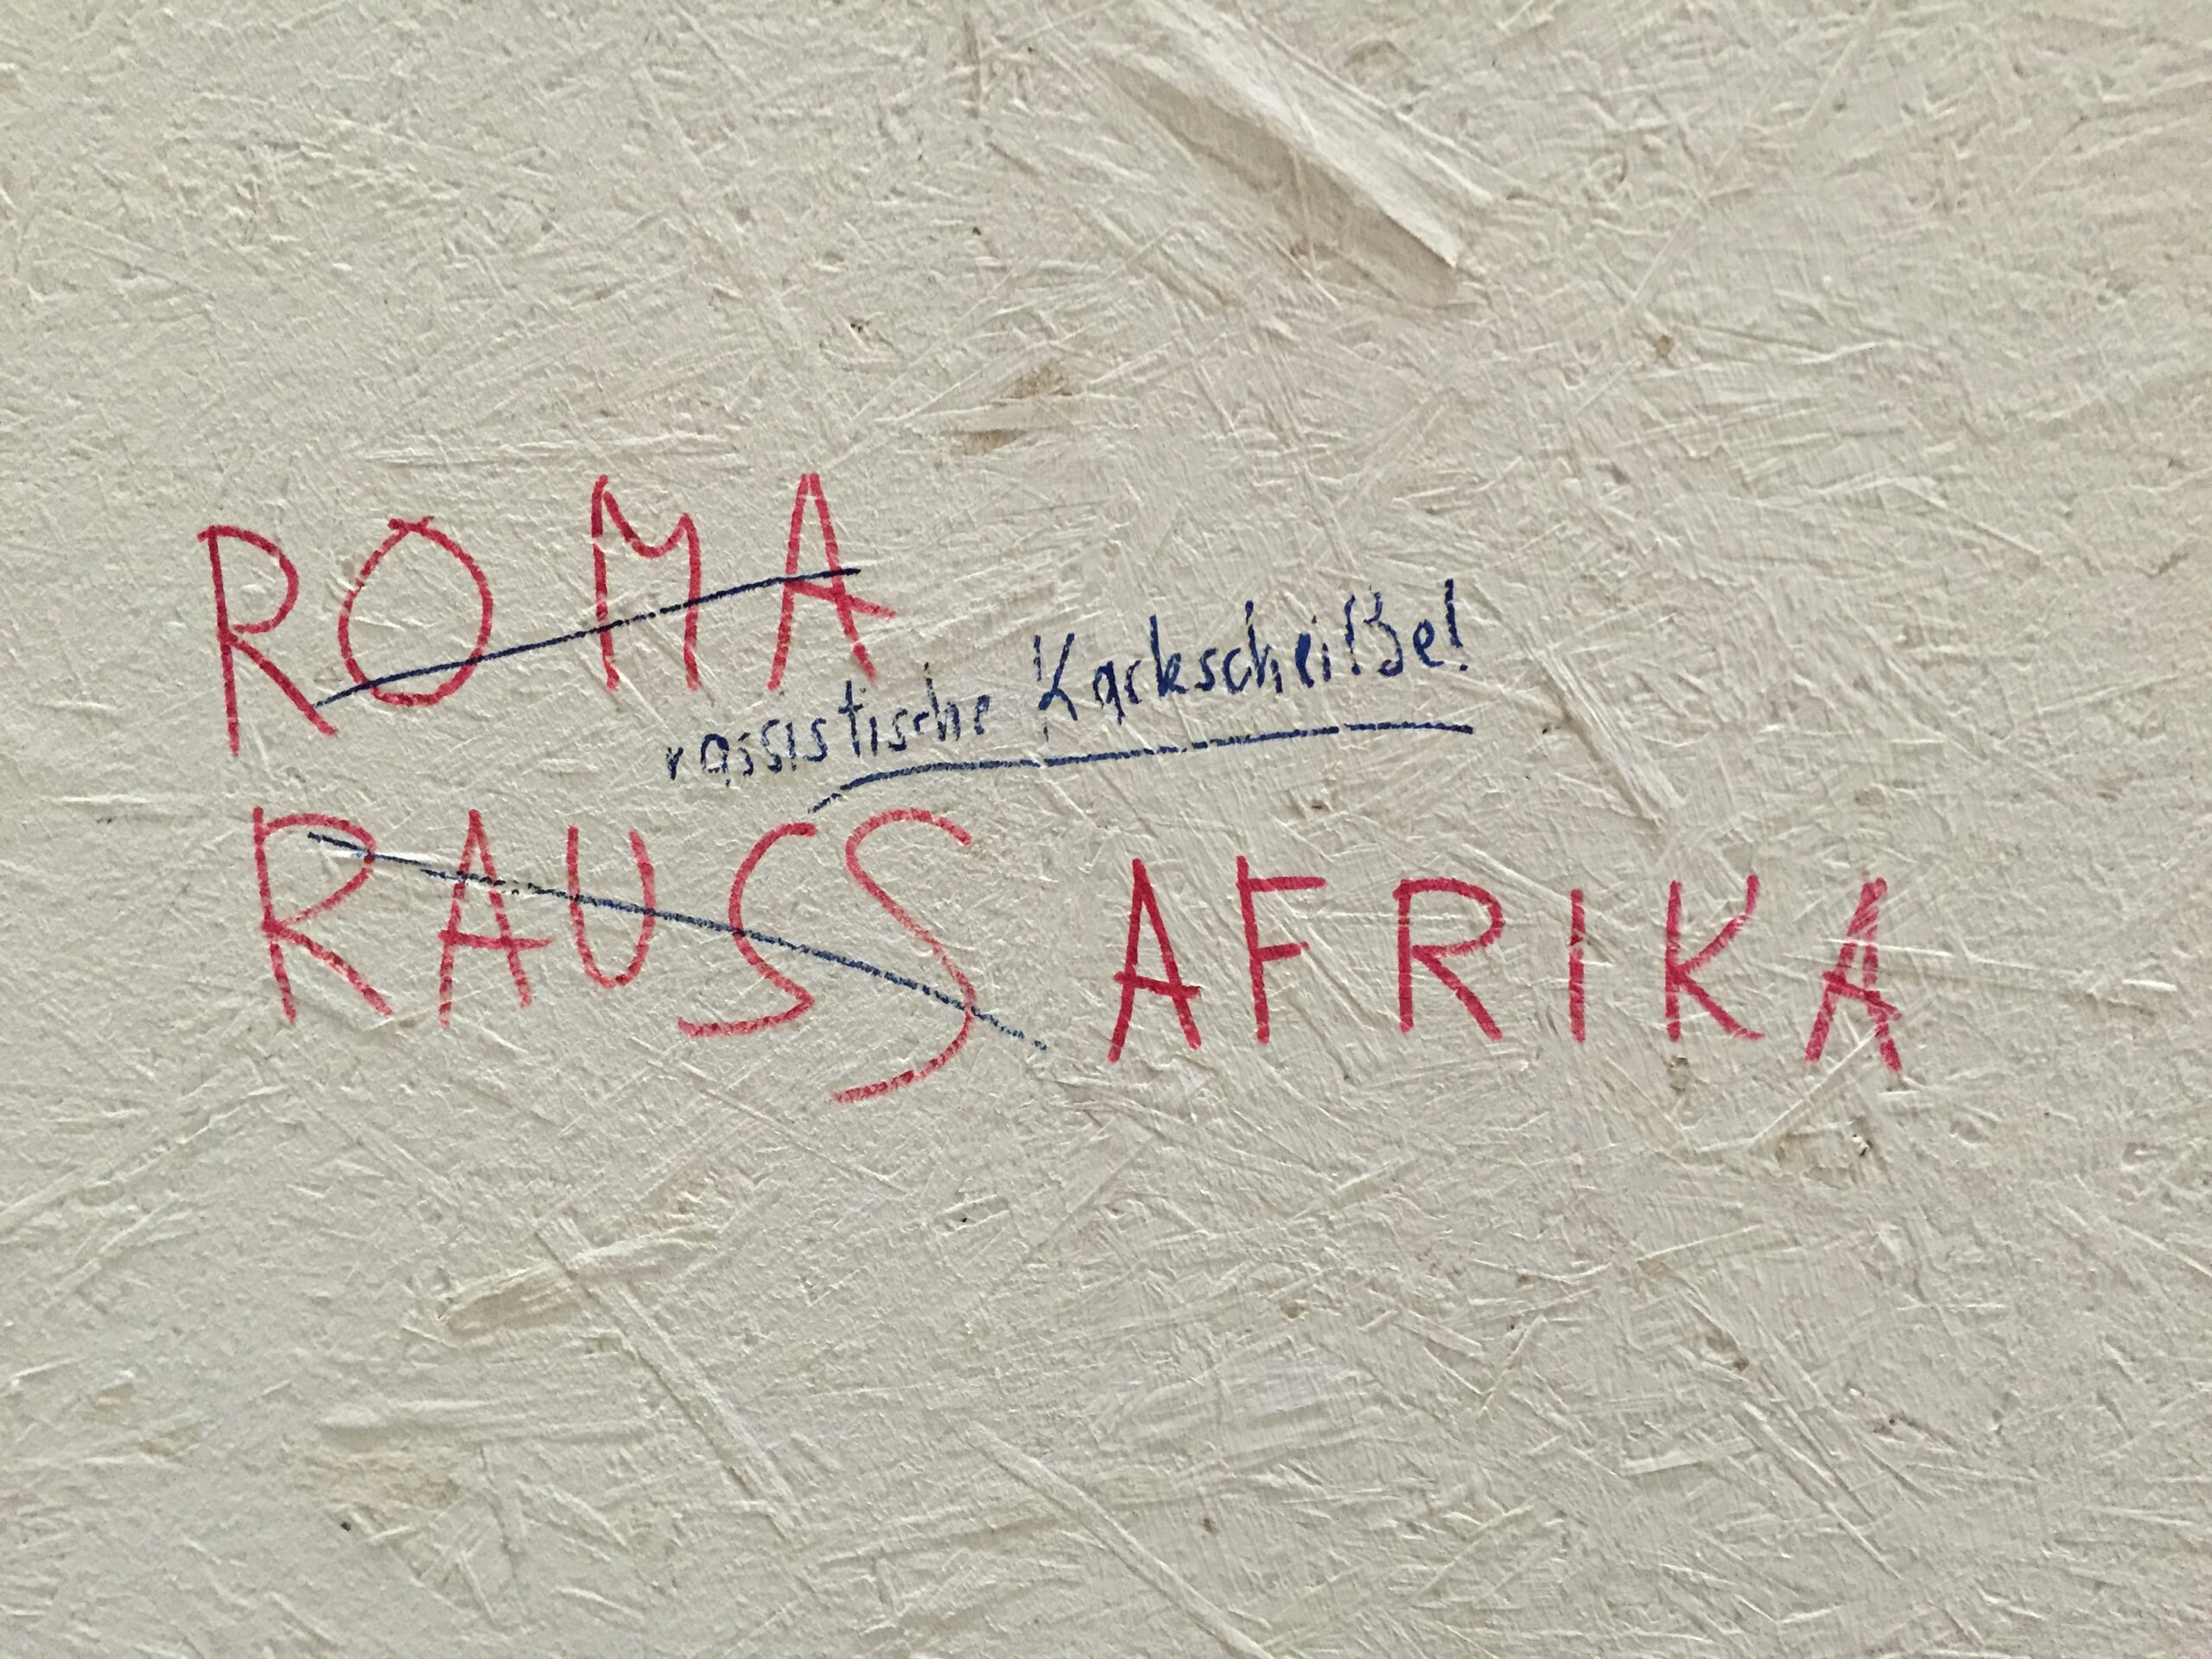 ROMA
rassistische Kackscheiße!
RAUSS AFRIKA